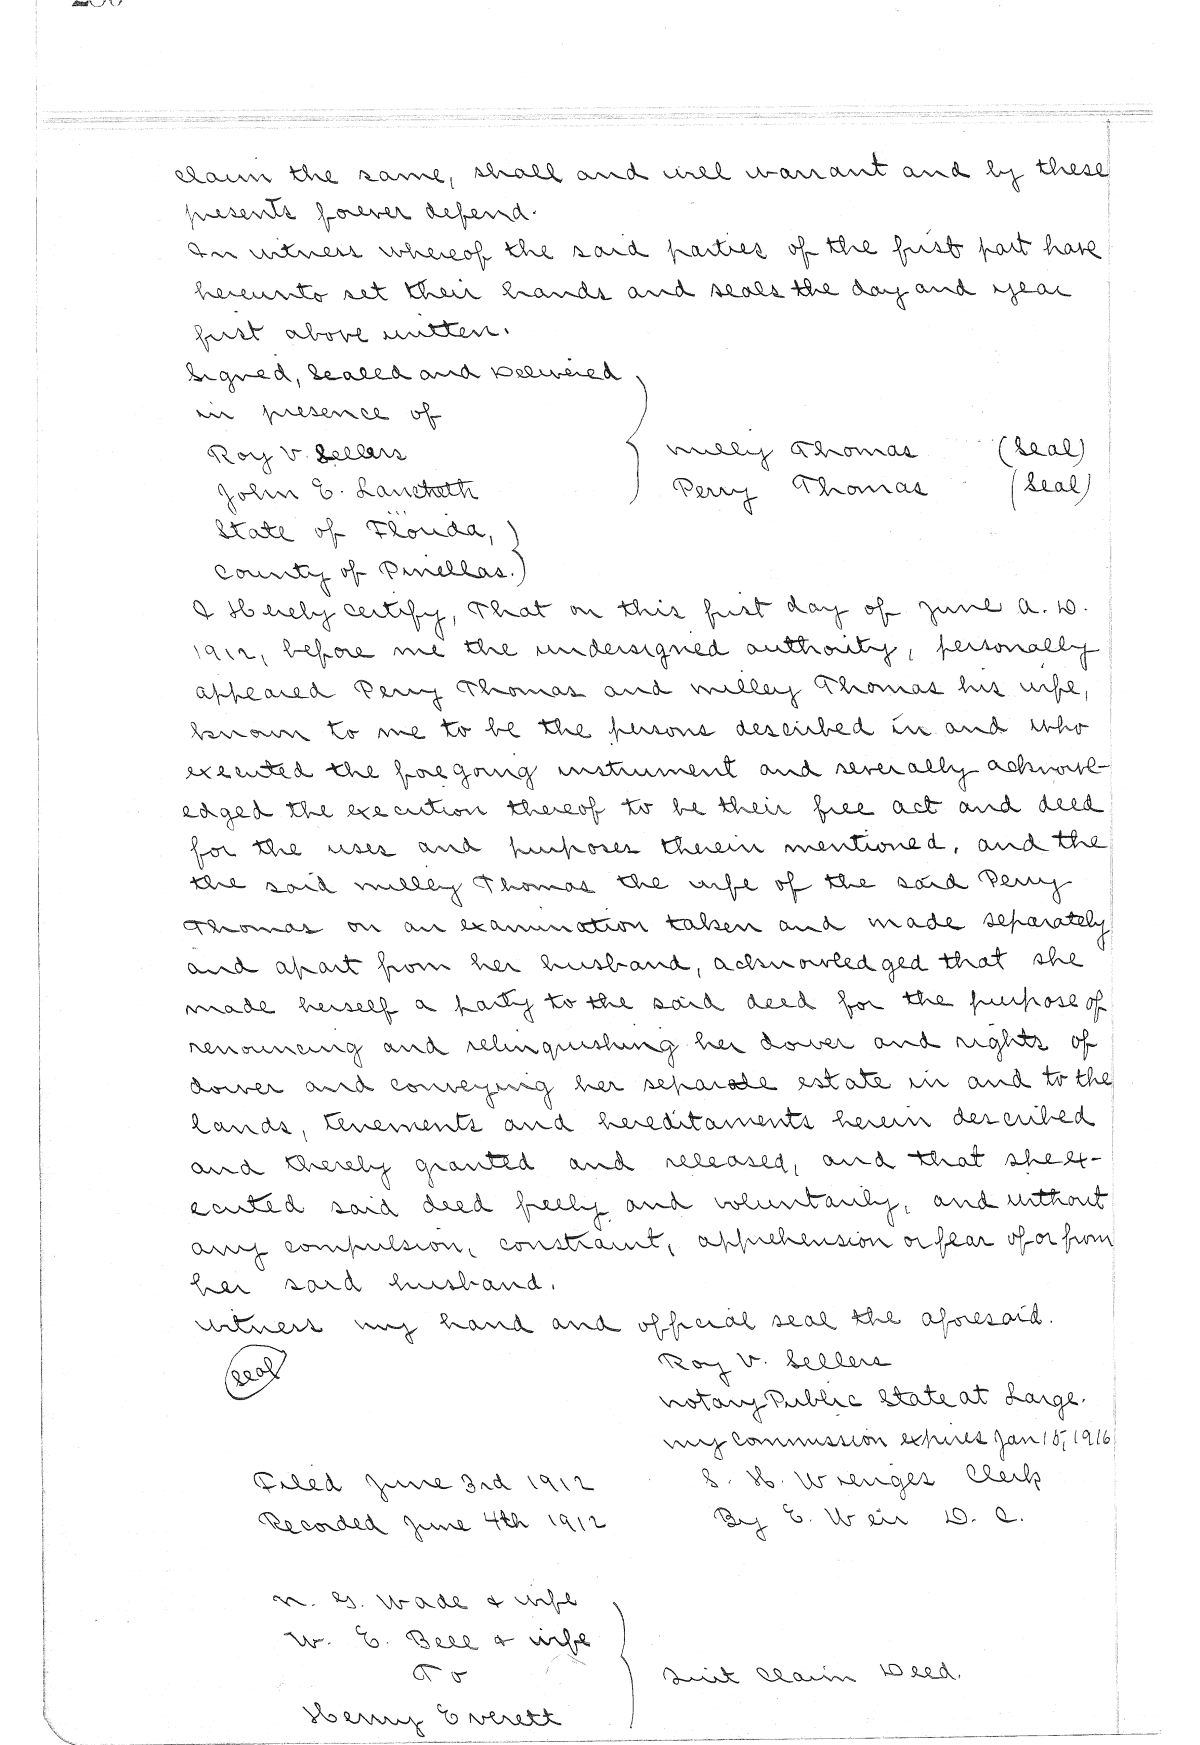 claim the same, shall and will warrant and by these
presents forever defend.
In witness whereof the said parties of the first part have
hereunto set their hands and seals the day and year
first above written.
Signed, Sealed and Delivered
in presence of
Roy V. Sellers
Milly Thomas (Seal)
John E.
Perry Thomas (Seal)
State of Florida,
County of Pinellas.
I Hereby certify, That on this first day of June A. D.
1912, before me the undersigned authority, personally
appeared Perry Thomas and Milley Thomas his wife,
known to me to be the persons described in and who
executed the foregoing instrument and severally acknowl-
edged the execution thereof to be their free act and deed
for the uses and purposes therein mentioned, and the
the said Milley Thomas the wife of the said Perry
Thomas on an examination taken and made separately
and apart from her husband, acknowledged that she
made herself a party to the said deed for the purpose of
renouncing and relinquishing her dower and rights of
dower and conveying her separate estate in and to the
lands, tenements and hereditaments herein described
and thereby granted and released, and that she ex-
ecuted said deed freely and voluntarily, and without
any compulsion, constraint, apprehension or fear of or from
her said husband.
Witness my hand and official seal the aforesaid.
Seal
Roy V. Sellers
Notary Public State at Large.
My commission expires Jan 15, 1916
Filed June 3rd 1912
S. H. Wrenges Clerk
Recorded June 4th 1912
By E. Weir D. C.
N. G. Wade & wife
W. E. Bell & wife
To
Quit Claim Deed.
Henry Everett